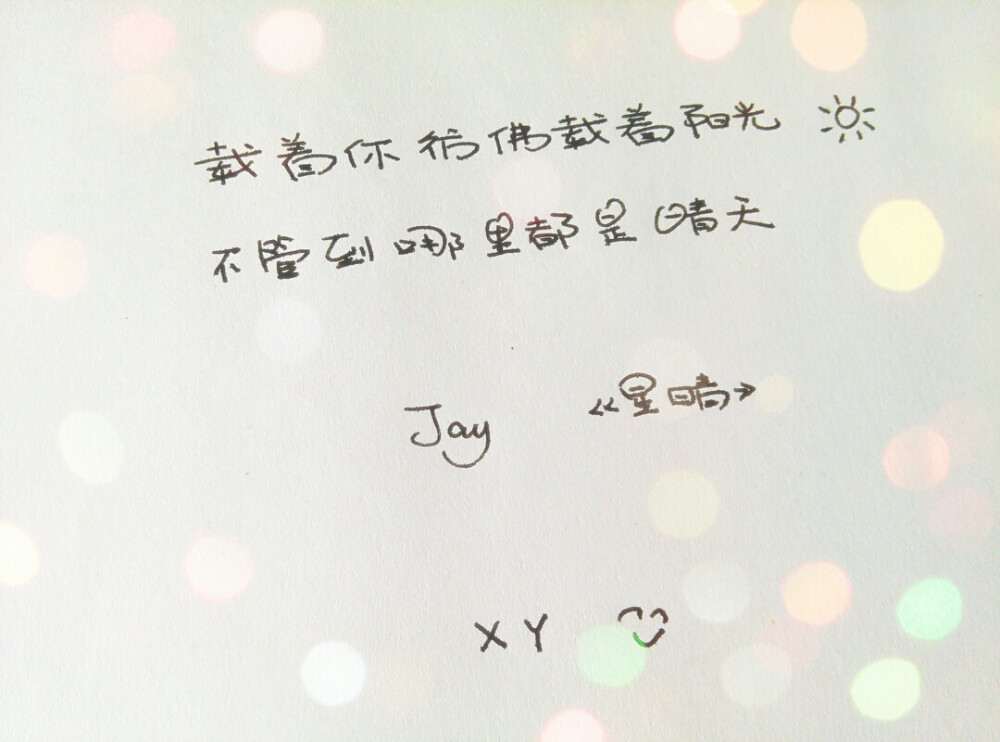 载着你彷佛载着阳光
不管到哪里都是晴天
Jay 《星晴》
XY